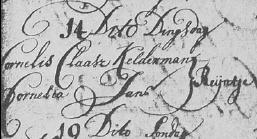 14 Dito Dingsdag
Cornelis Claasz Keldermans
Cornelia Jans Reijntje
19 Dito Sondag